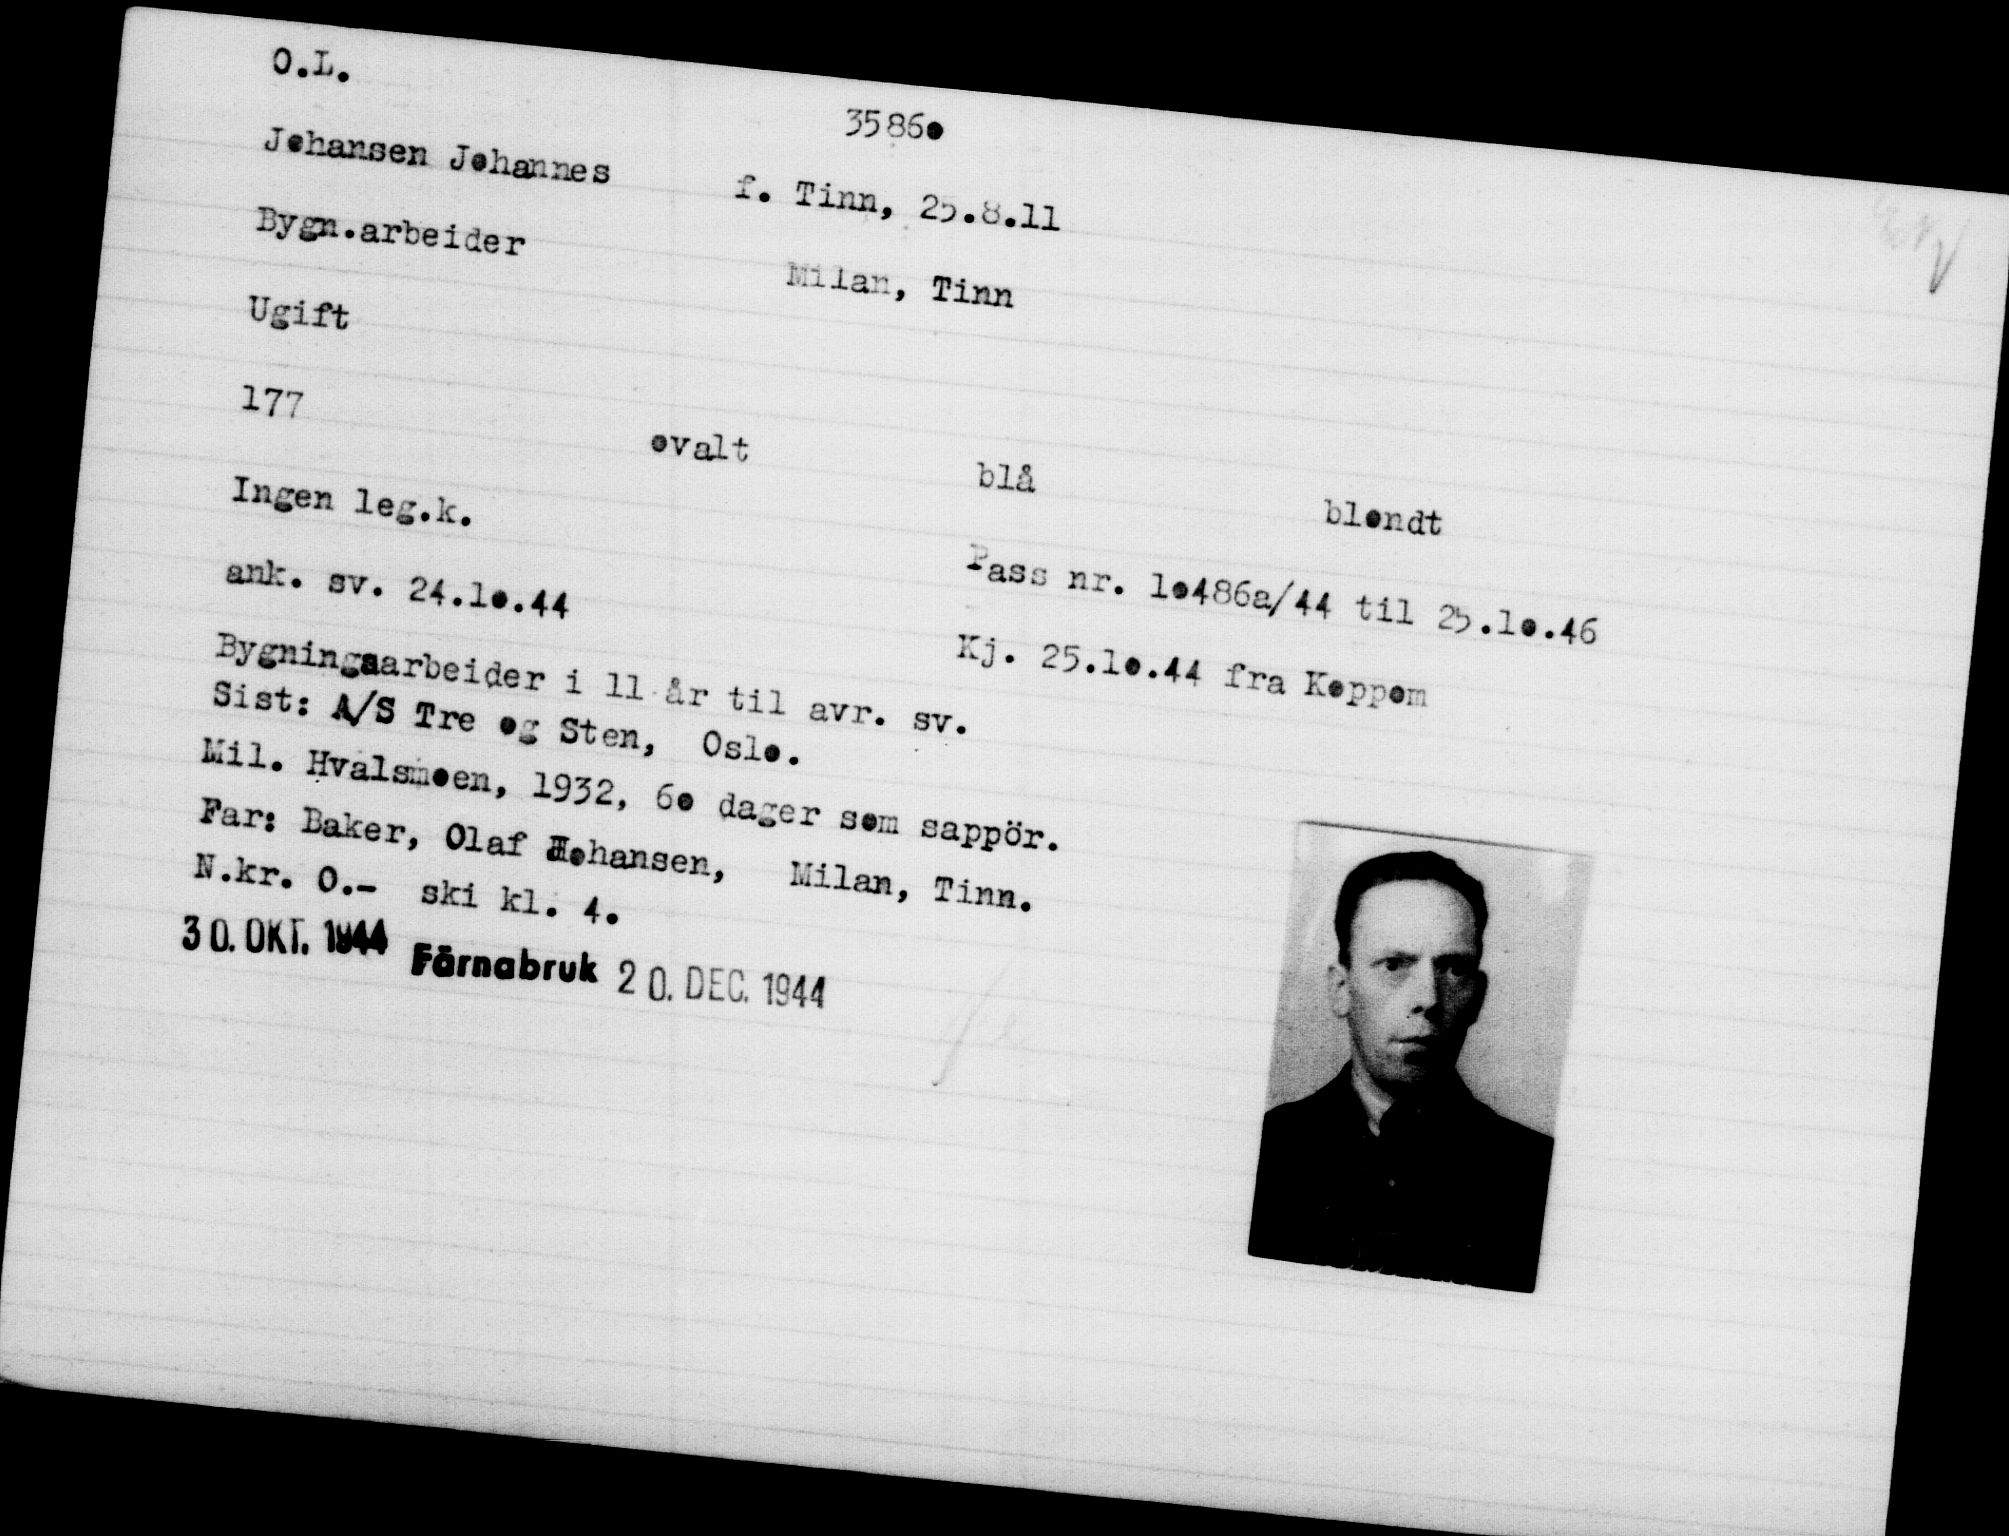 O.L.
3586o
Johansen Johannes f. Tinn, 25.8.11
Bygn.arbeider Milan, Tinn
Ugift
177 ovalt blå blondt
Ingen leg.k. Pass nr. 1o486a/44 til 25.1o.46
ank. sv. 24.1o.44 Kj. 25.1o.44 fra Koppom
Bygningsarbeider i 11 år til avr. sv.
Sist: A/S Tre og Sten, Oslo.
Mil. Hvalsmoen, 1932, 6o dager som sappör.
Far: Baker, Olaf Johansen, Milan, Tinn.
N.kr. 0.- ski kl. 4.
30. OKT. 1944 Färnabruk 20. DEC. 1944